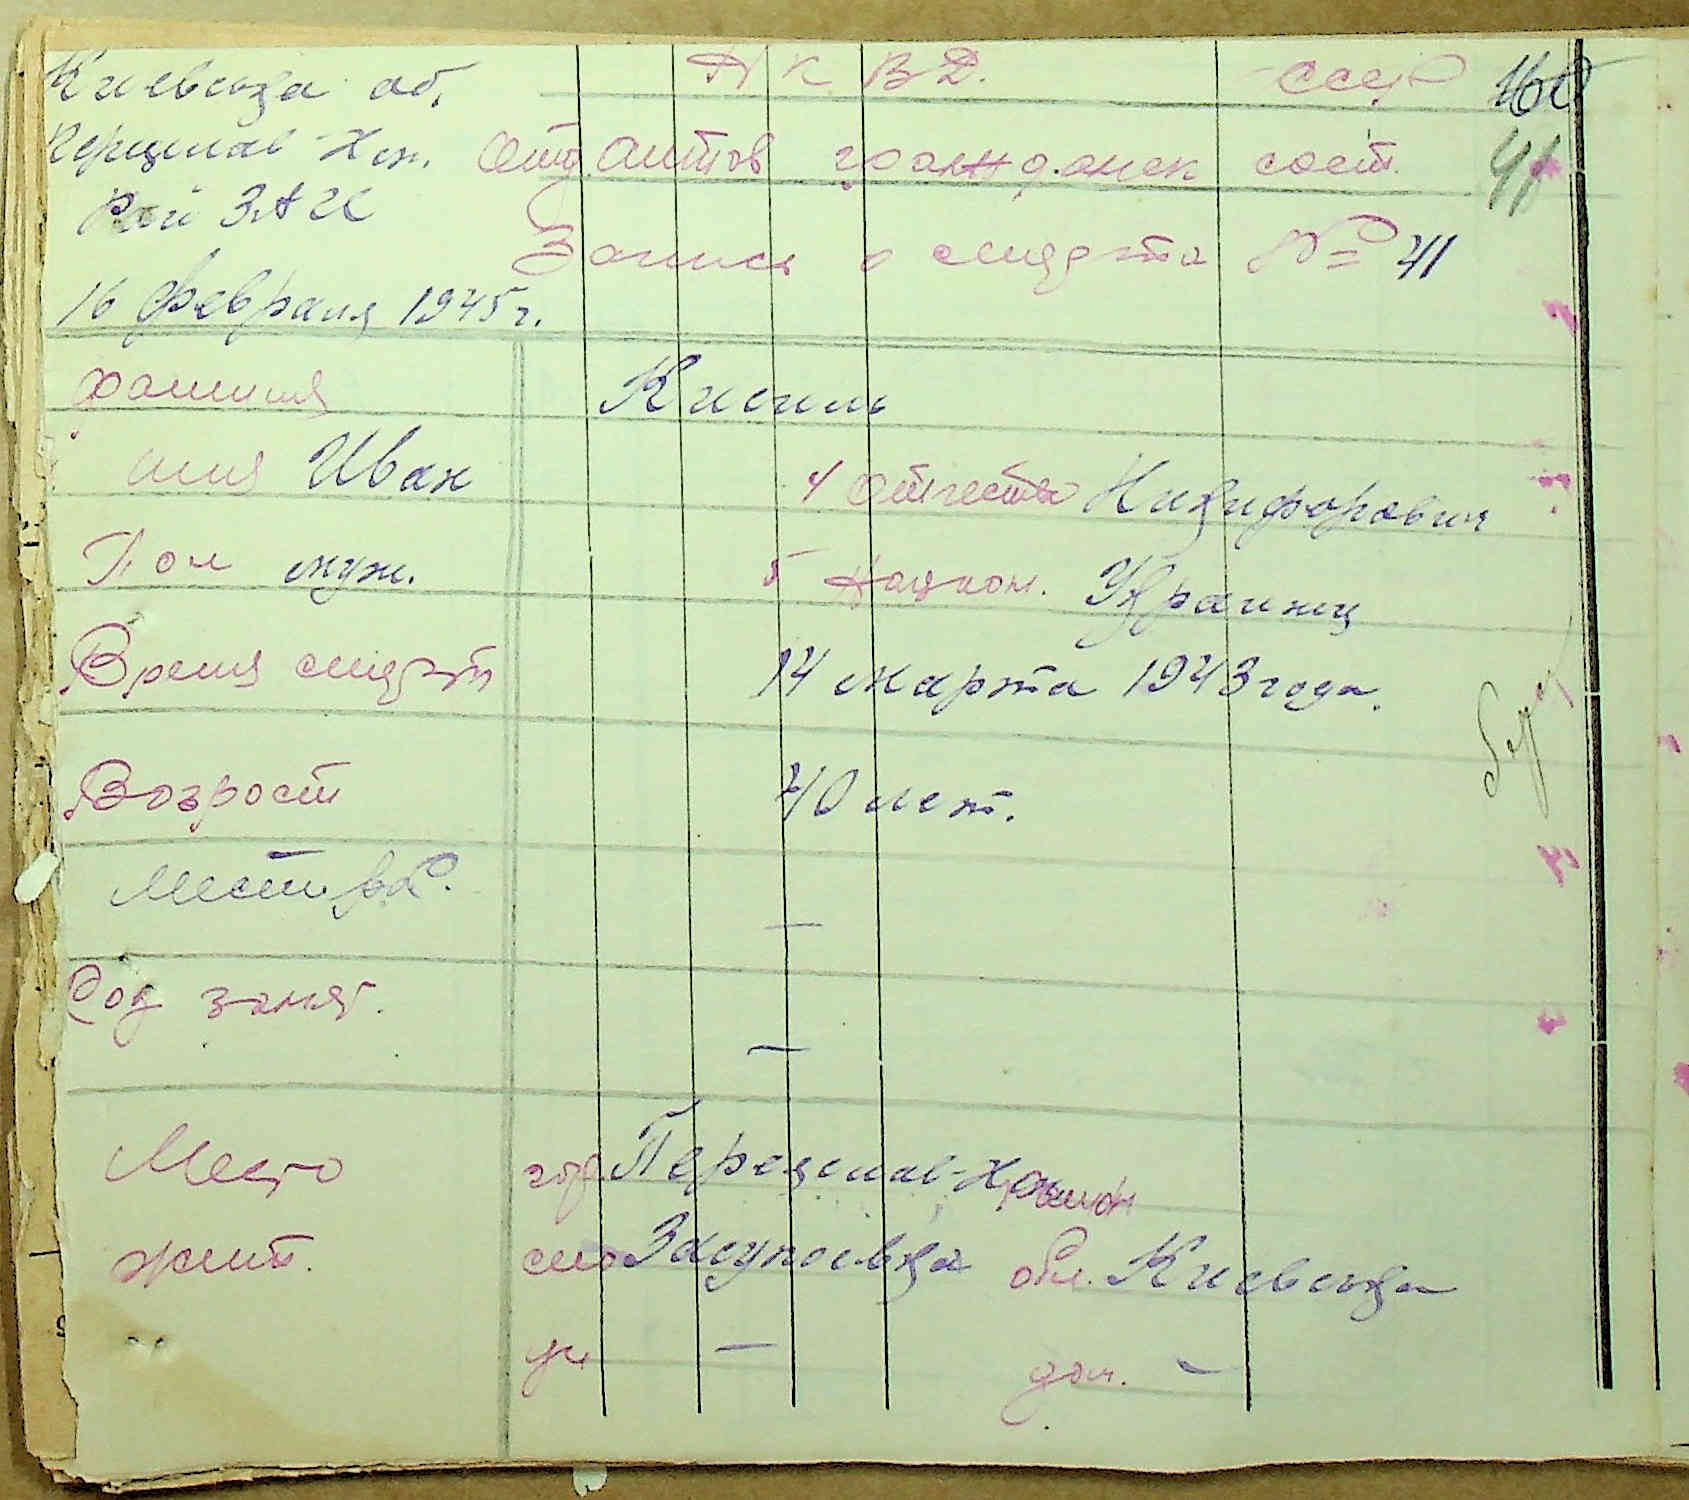 Киевська об. Н К В Д. СССР 40
Переяслав-Хм. Отд. актов гражданск сост. 41
Рай ЗАГС
Запись о смерти № 41
16 февраля 1945 г.
фамилия Кисиль
имя Иван 4 отчество Никифорович
Пол муж. 5 Национ. Украинец
Время смерти 14 марта 1943 года.
Возраст 40 лет.
Место рож. —
Род занят. —
Место гор. Переяслав-Хм район
жит. село Засупоевка обл. Киевська
ул — дом. —